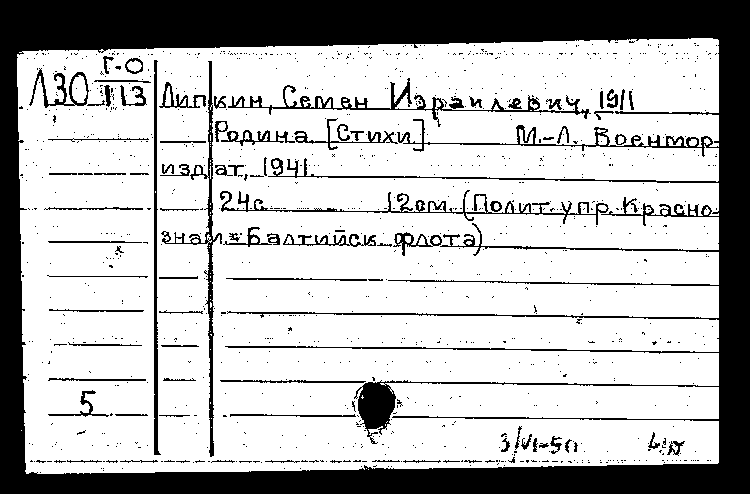 Г-О
Л30 113 Липкин, Семен Израилевич, 1911
Родина [Стихи]. М.-Л., Военмор-
издат, 1941.
24с 12см. (Полит. упр. Красно-
знам. Балтийск. флота)
5
3/VI-50